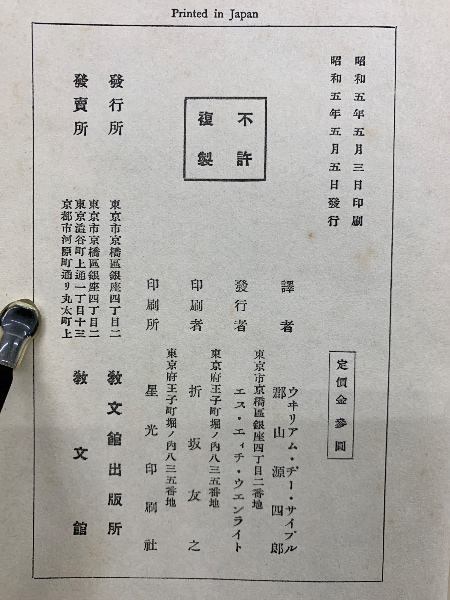 Printed in Japan
昭和五年五月三日印刷
昭和五年五月五日發行
定價金參圓
不許
複製
譯者
ウヰリアム・ヂー・サイプル
郡山源四郎
東京市京橋區銀座四丁目二番地
發行者
エス・エィチ・ウエンライト
東京府王子町堀ノ内八三五番地
印刷者
折坂友之
東京府王子町堀ノ内八三五番地
印刷所
星光印刷社
東京市京橋區銀座四丁目二
發行所
教文館出版所
東京市京橋區銀座四丁目二
東京澁谷町上通一丁目十三
京都市河原町通リ丸太町上
發賣所
教文館